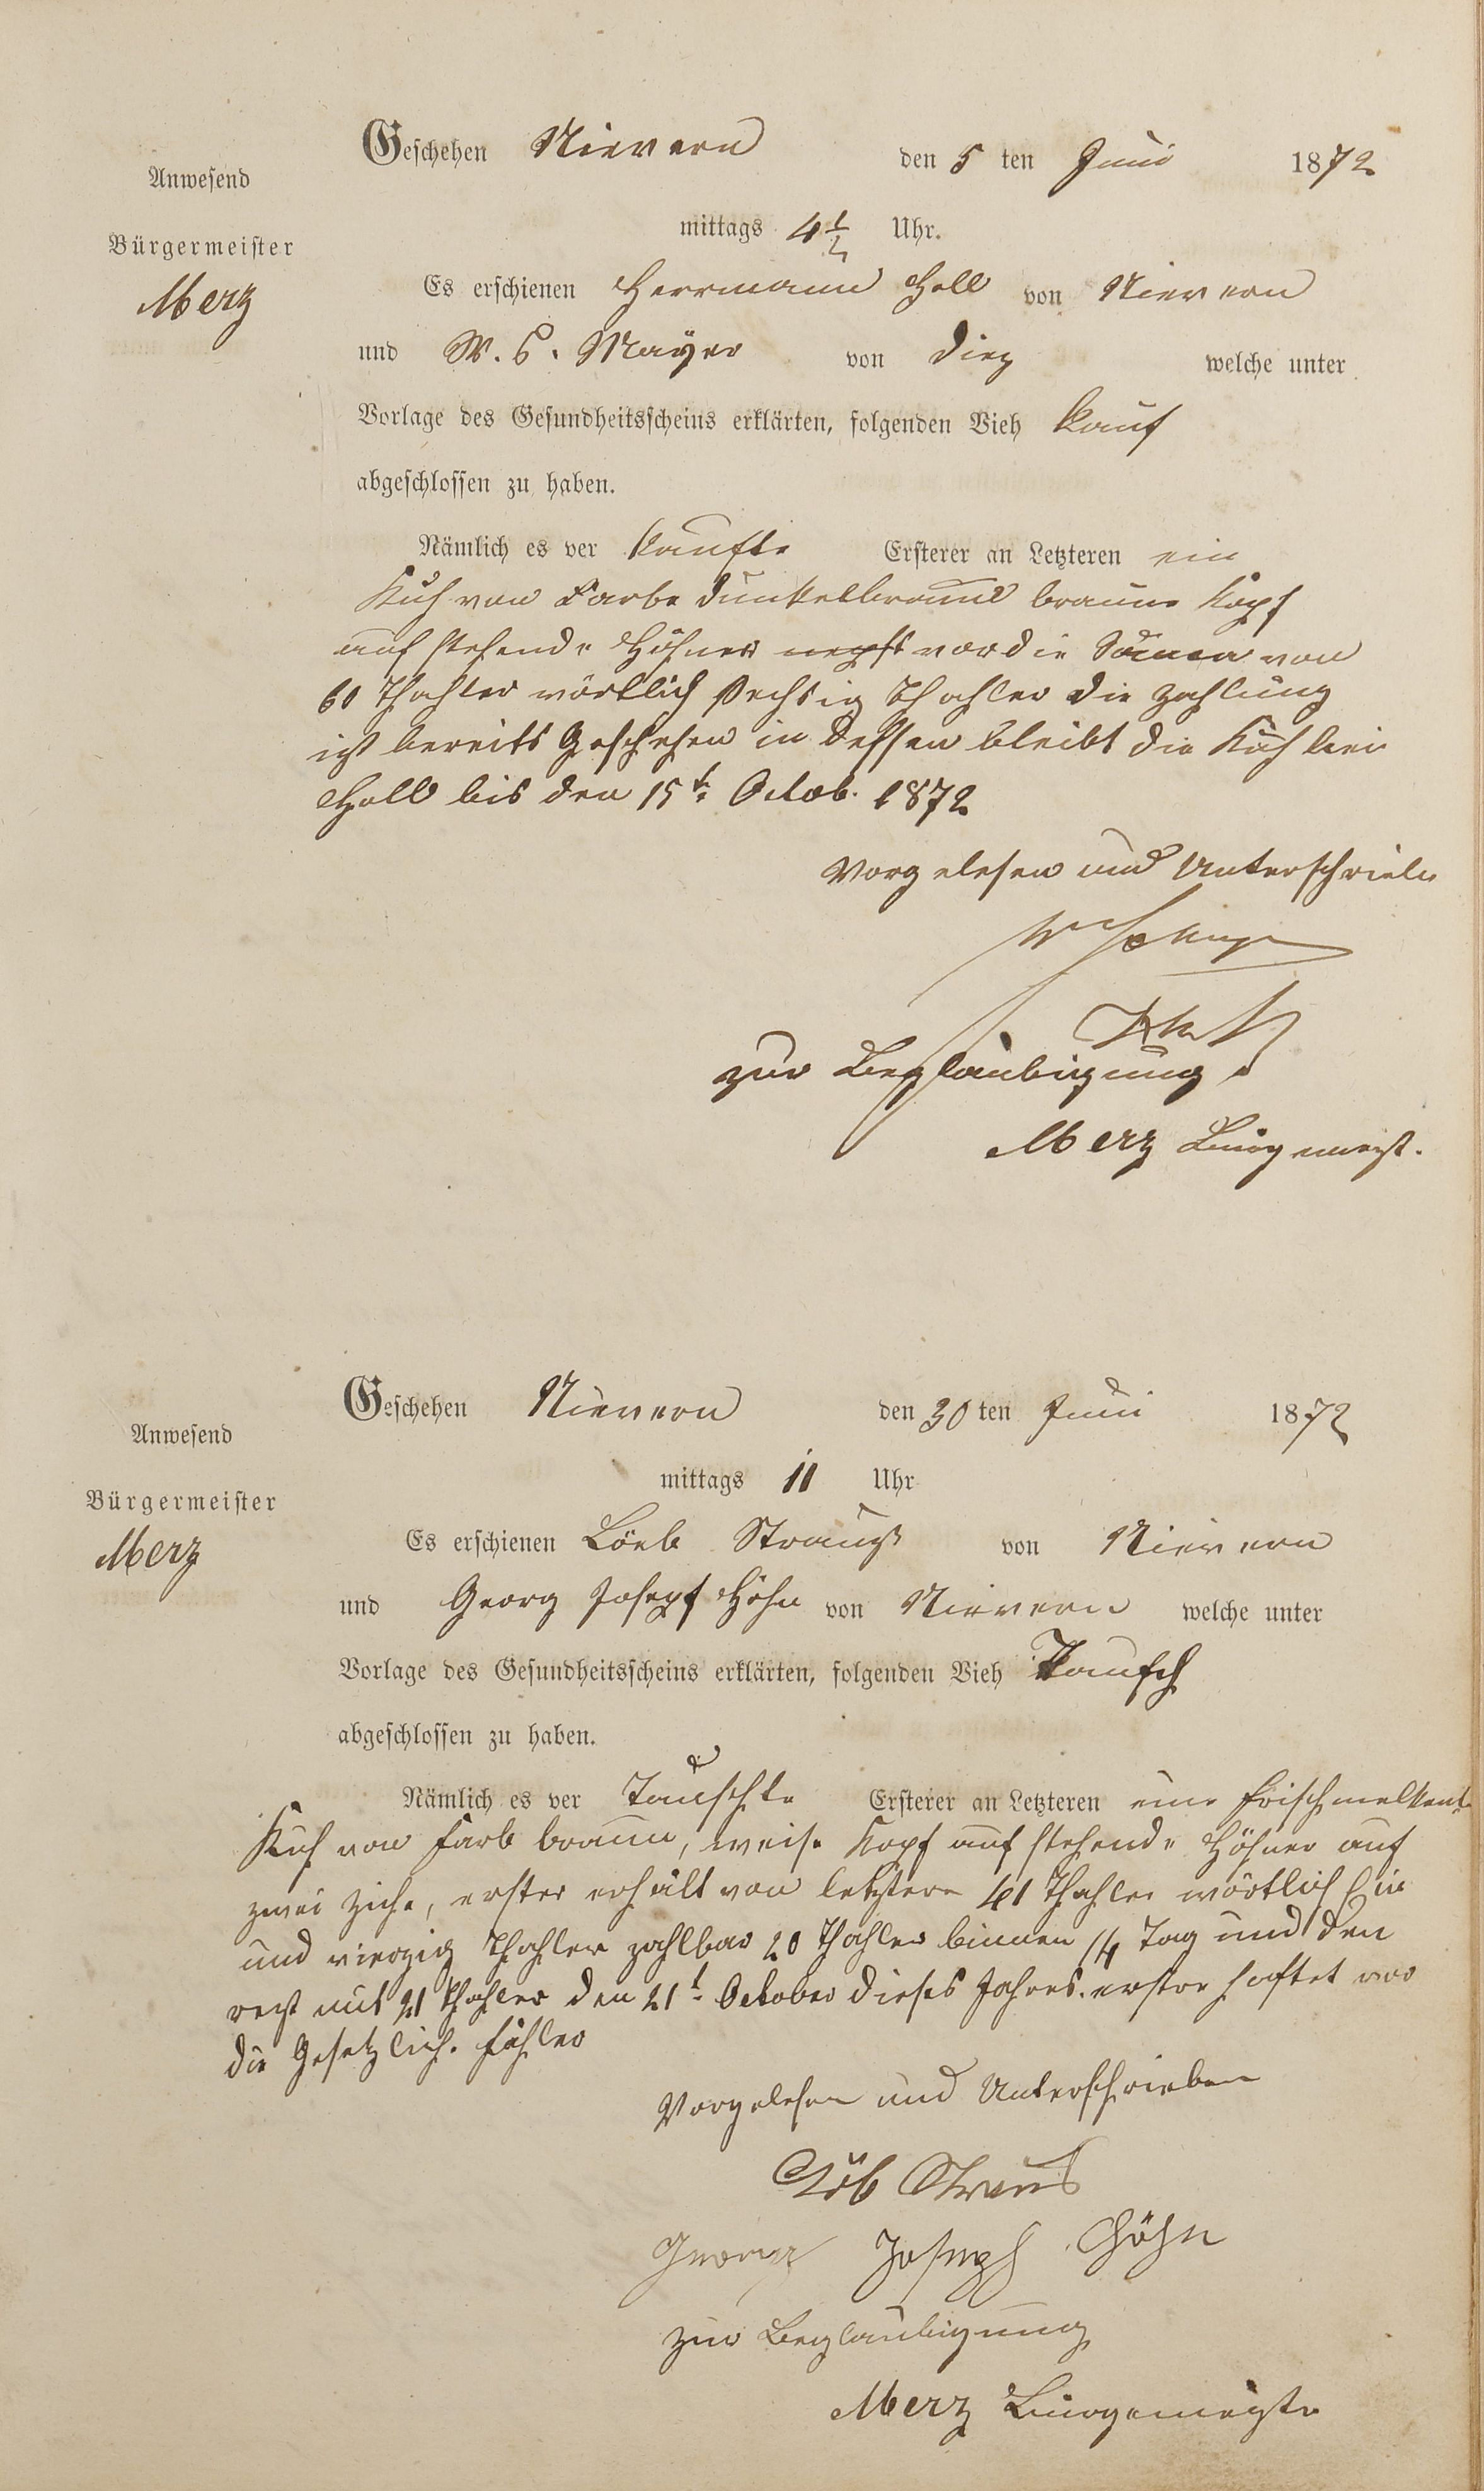 Geschehen Nievern den 5 ten Juni 1872
Anwesend
mittags 4 1/2 Uhr.
Bürgermeister
Merz
Es erschienen Herrmann Holl von Nievern
und W. S. Mayer von Diez welche unter
Vorlage des Gesundheitsscheins erklärten, folgenden Vieh kauf
abgeschlossen zu haben.
Nämlich es ver kaufte Ersterer an Letzteren ein
Kuh von Farbe dunkelbraun braune Kopf
auf stehende Höhner vor die Summa von
60 Thahler wörtlich sechsig Thahler die Zahlung
ist bereits Geschehen in dessen bleibt die Kuh bei
Holl bis den 15t. Octob. 1872
Vorgelesen und Unterschrieben
zur Beglaubigung
Merz Bürgemeist.
Geschehen Nievern den 30 ten Juni 1872
Anwesend
mittags 11 Uhr
Bürgermeister
Merz
Es erschienen Löeb Strauß von Nievern
und Georg Josepf Höhn von Nievern welche unter
Vorlage des Gesundheitsscheins erklärten, folgenden Vieh Tausch
abgeschlossen zu haben.
Nämlich es ver Tauschte Ersterer an Letzteren eine frischmelkent
Kuh von Farb braun, weise Kopf auf stehende Höhner auf
zwei Ziche, erster erhält von letztere 41 Thahler wörtlich Ein
und vierzig Thahler zahlbar 20 Thahler binnen 14 Tag und den
rest mit 21 Thahler den 21t. October dieses Jahres. erstre haftet vor
die Gesetzlich. Fähler
Vorgelesen und Unterschrieben
Löb Straus
Georg Joseph Höhn
zur Beglaubigung
Merz Bürgemeister